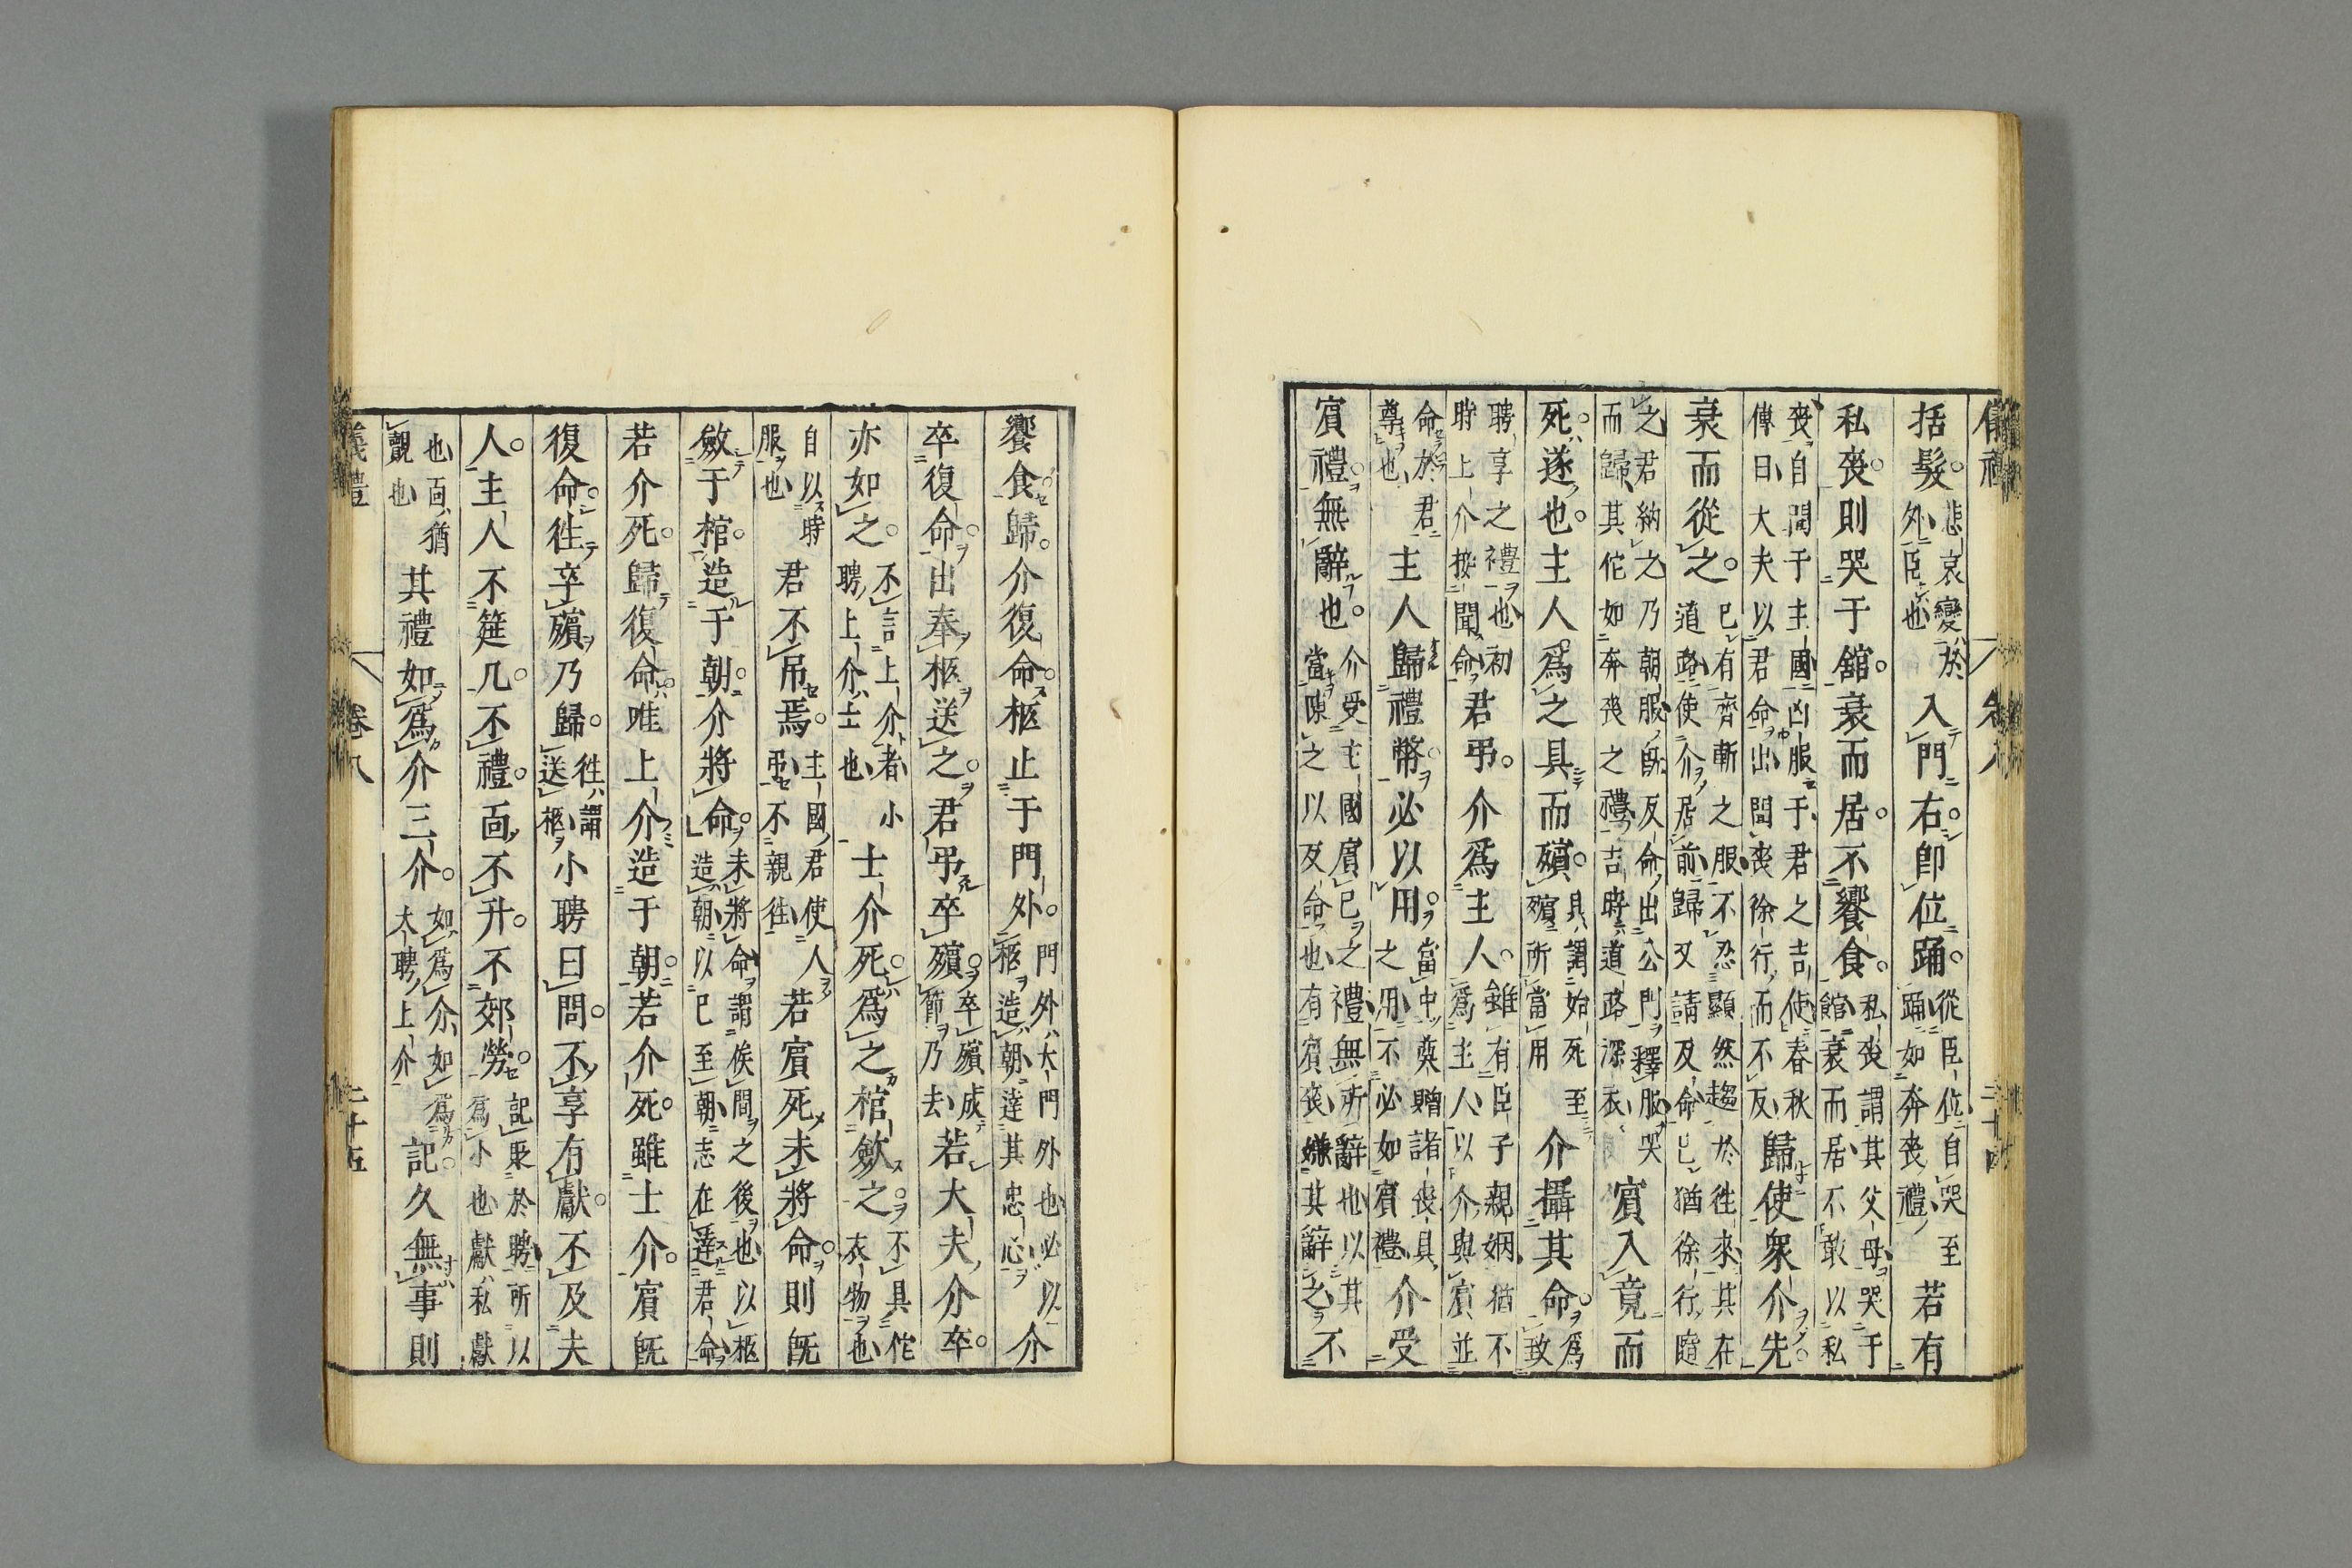 括髮悲哀變於外臣也入門右即位踊從臣位自哭至踊如奔喪禮若有
私喪則哭于舘衰而居不饗食私喪謂其父母哭于舘衰而居不敢以私
喪自聞于主國凶服于君之吉使春秋傳曰大夫以君命出聞喪徐行而不反歸使衆介先
衰而從之巳有齊斬之服不忍顯然趨於往來其在道路使介居前歸又請反命已猶徐行隨
之君納之乃朝服既反命出公門釋服哭而歸其佗如奔喪之禮吉時道路深衣賔入竟而
死遂也主人爲之具而殯具謂始死至殯所當用介攝其命爲致
聘享之禮也初時上介接聞命君弔介爲主人雖有臣子親姻猶不爲主人以介與賔並
命於君尊也主人歸禮幣必以用當中奠贈諸喪具之用不必如賔禮介受
賔禮無辭也介受主國賔巳之禮無所辭也以其當陳之以反命也有賔喪嫌其辭之不
儀禮 卷八 二十四
饗食歸介復命柩止于門外門外大門外也必以柩造朝達其忠心介
卒復命出奉柩送之君弔卒殯卒殯成節乃去若大夫介卒
亦如之不言上介者小聘上介士也士介死爲之棺斂之不具佗衣物也
自以時服也君不吊焉主國君使人弔不親往若賔死未將命則既
斂于棺造于朝介將命未將命謂俟間之後也以柩造朝以已至朝志在達君命
若介死歸復命唯上介造于朝若介死雖士介賔既
復命往卒殯乃歸往謂送柩小聘曰問不享有獻不及夫
人主人不筵几不禮面不升不郊勞記貶於聘所以爲小也獻私獻
也面猶覿也其禮如爲介三介如爲介如爲大聘上介記久無事則
儀禮 卷八 二十五